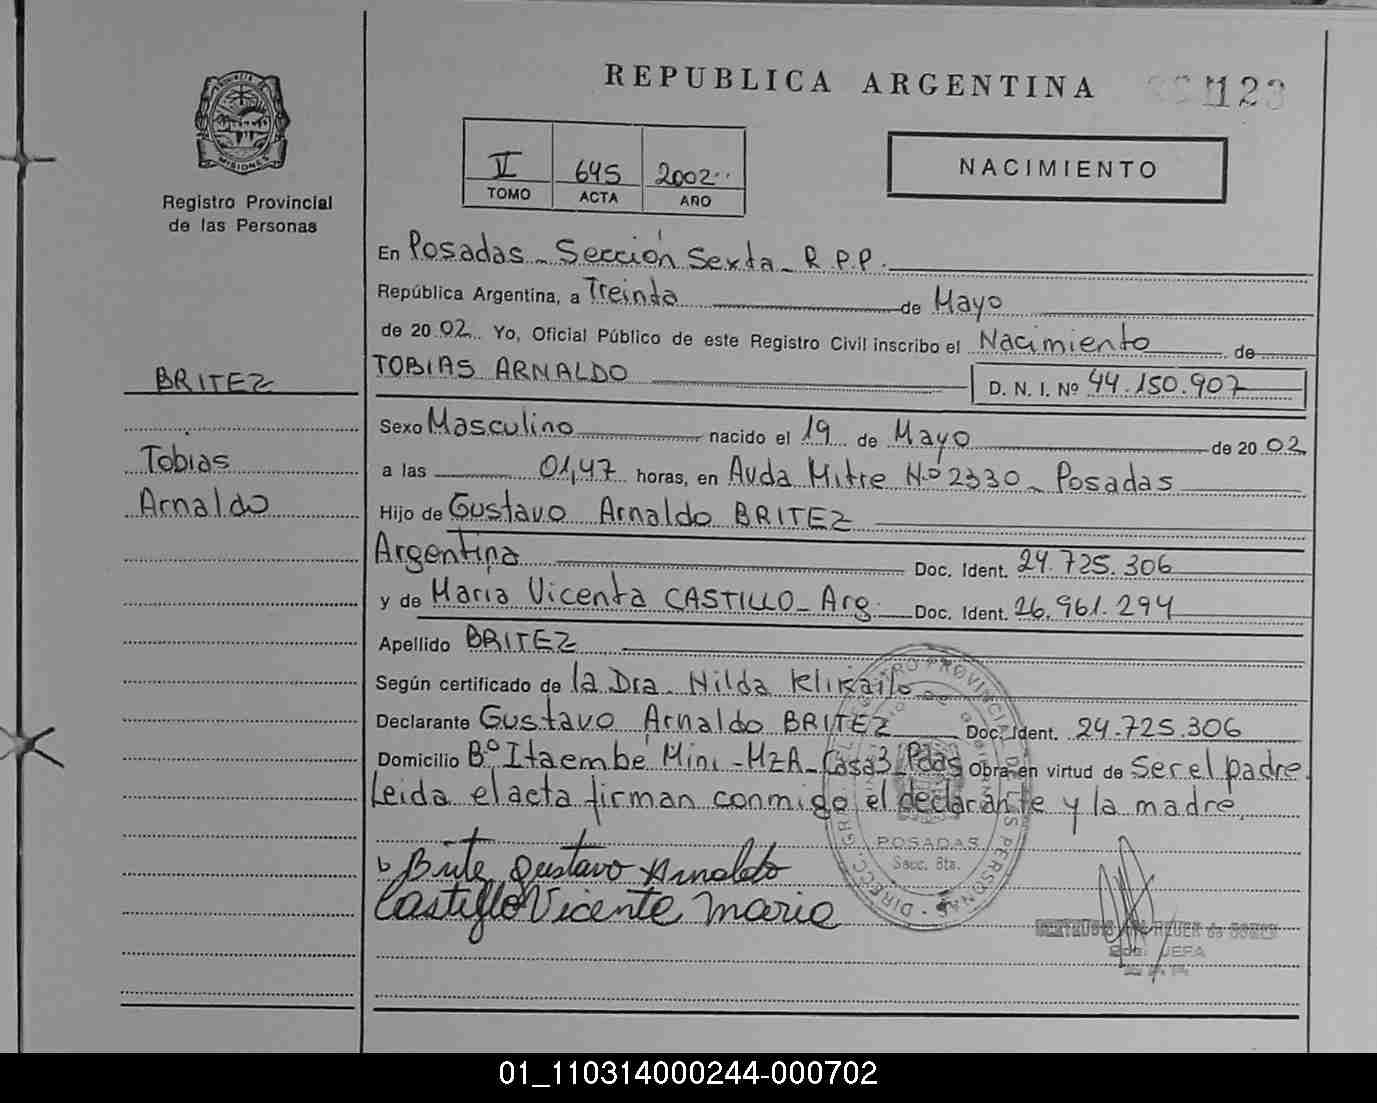 REPUBLICA ARGENTINA
123
MISIONES
Registro Provincial
de las Personas
V 645 2002
TOMO ACTA AÑO
NACIMIENTO
En Posadas - Sección Sexta - R.P.P.
República Argentina, a Treinta de Mayo
de 2002 Yo, Oficial Público de este Registro Civil inscribo el Nacimiento de
TOBIAS ARNALDO D. N. I. Nº 44.150.907
BRITEZ
Tobias
Arnaldo
Sexo Masculino nacido el 19 de Mayo de 2002
a las 01,47 horas, en Avda Mitre Nº 2330 - Posadas
Hijo de Gustavo Arnaldo BRITEZ
Argentina Doc. Ident. 24.725.306
y de Maria Vicenta CASTILLO - Arg. Doc. Ident. 26.961.294
Apellido BRITEZ
Según certificado de la Dra. Nilda Klikailo
Declarante Gustavo Arnaldo BRITEZ Doc. Ident. 24.725.306
Domicilio Bº Itaembé Mini - MzA - Casa 3 - Pdas Obra en virtud de Ser el padre.
Leida el acta firman conmigo el declarante y la madre.
Brite Gustavo Arnaldo
Castillo Vicente Maria
POSADAS
Secc. 6ta.
JEFA
01_110314000244-000702